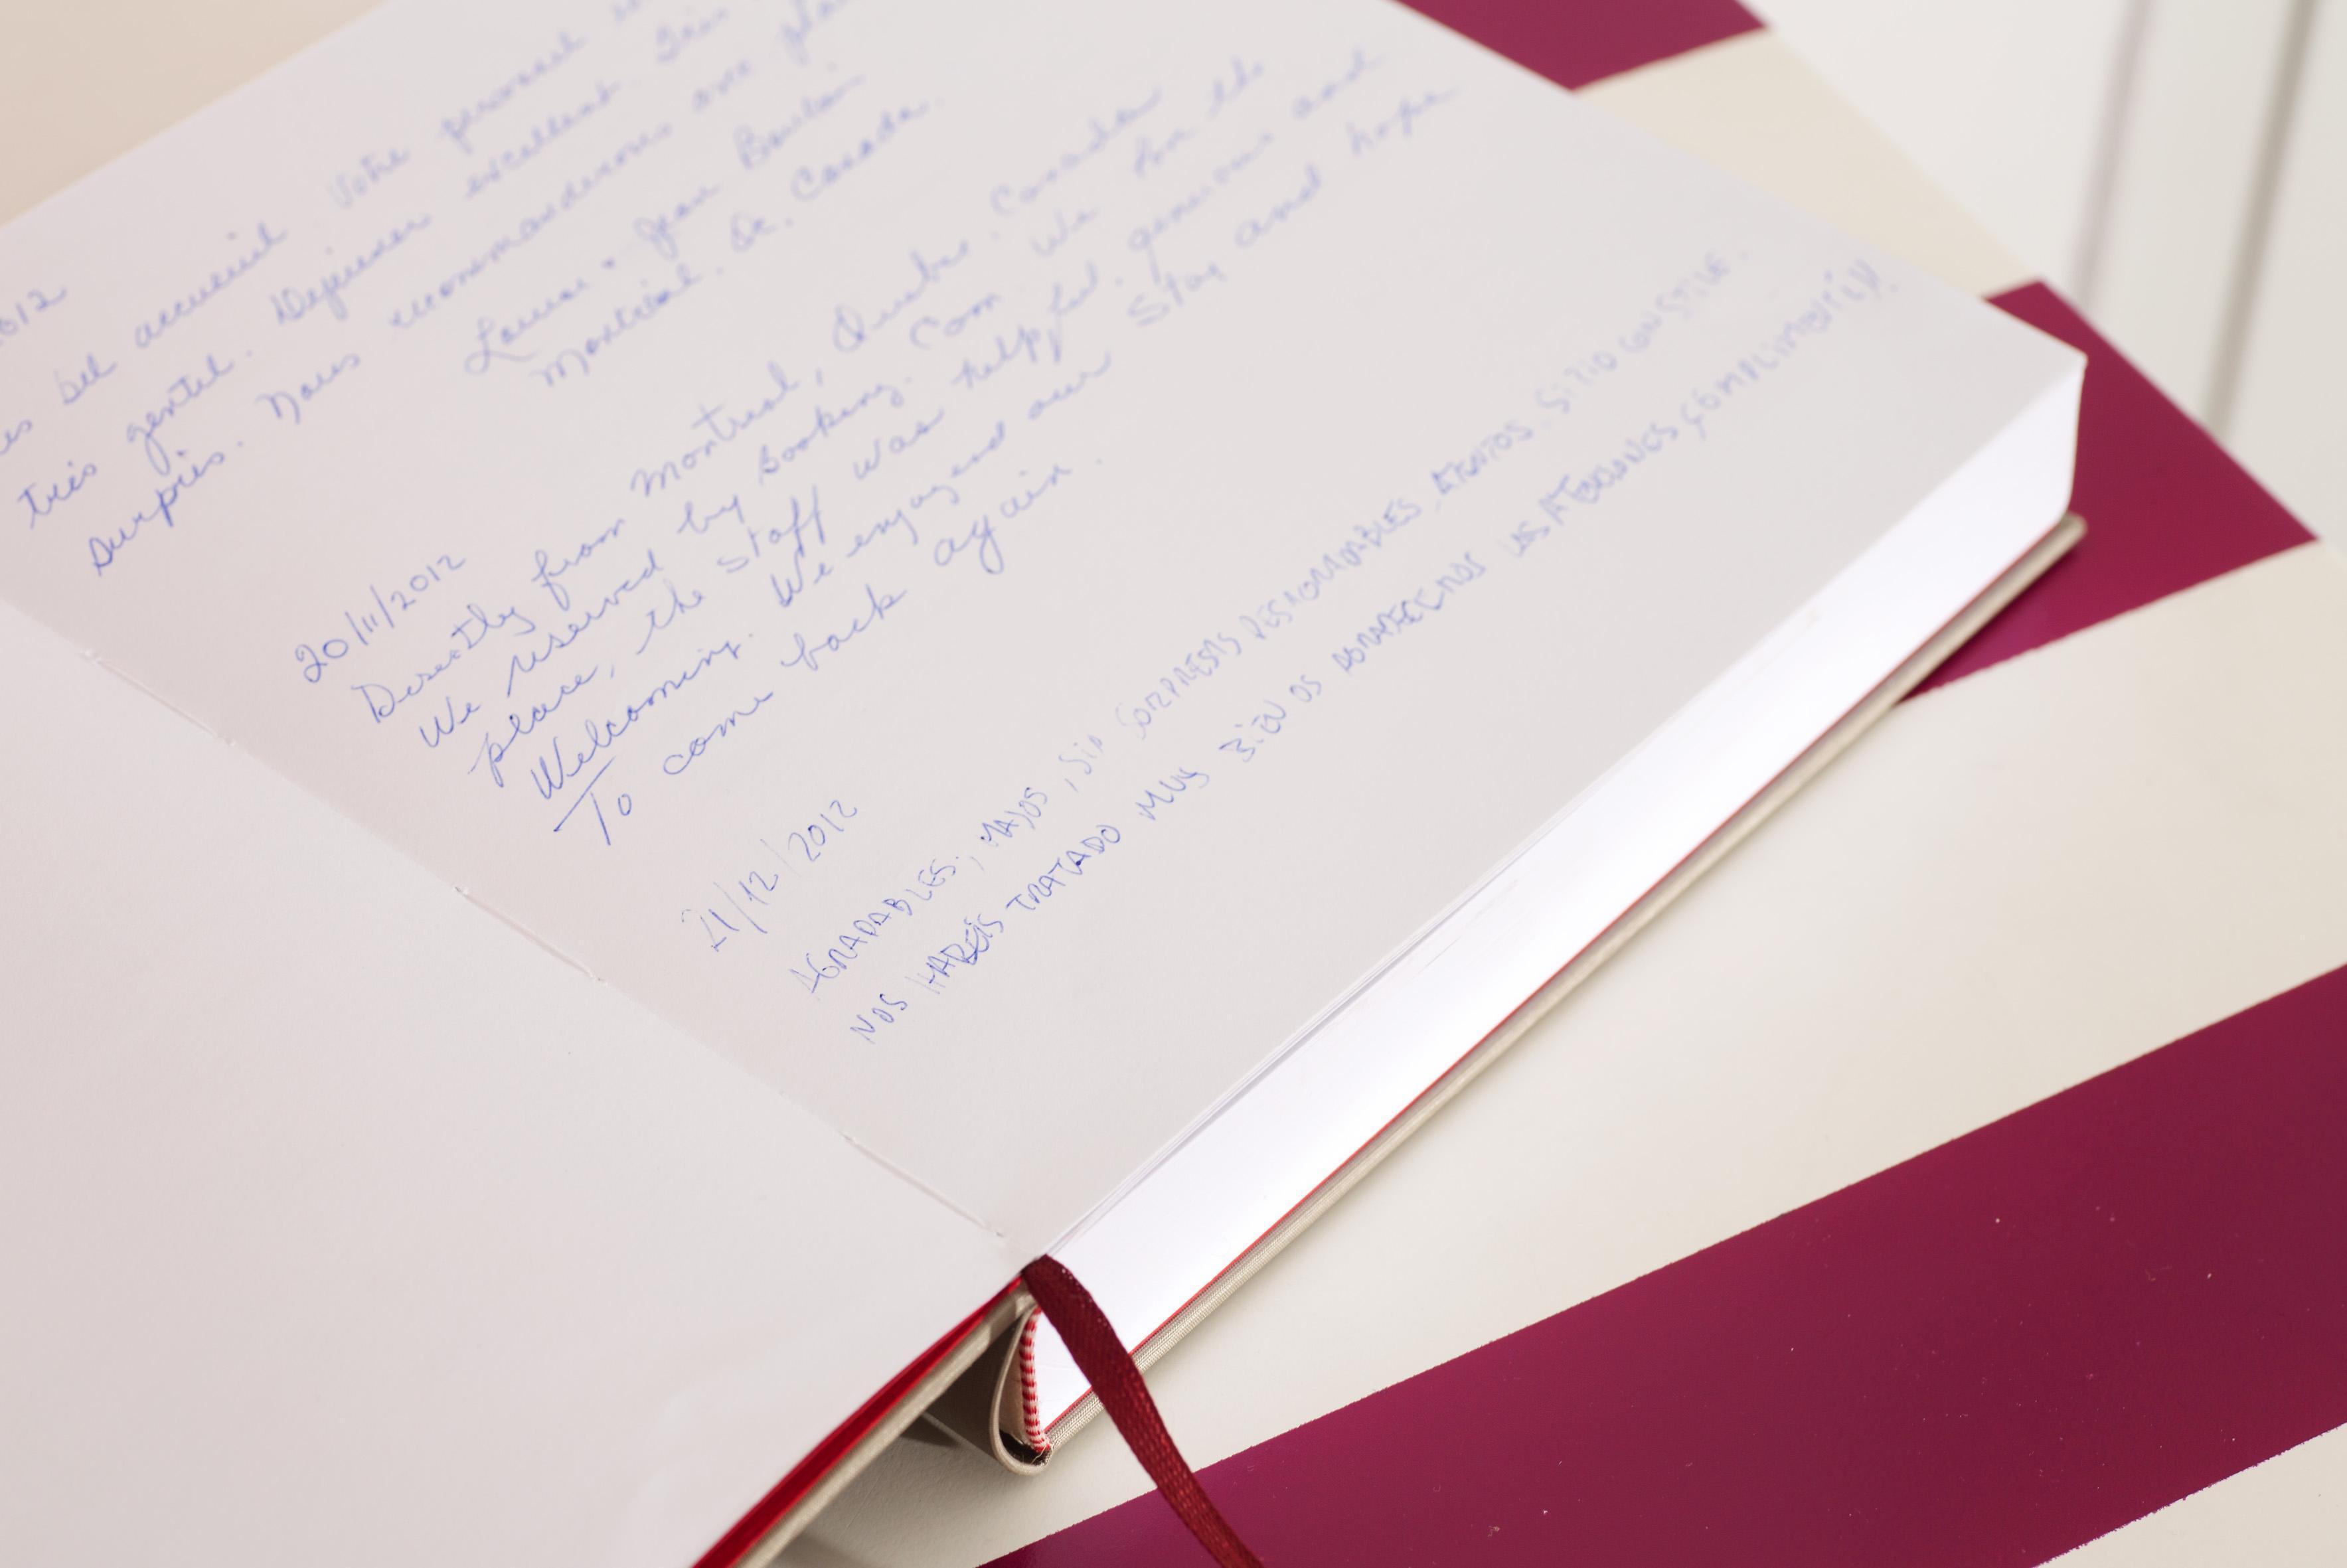 2012
bel accueil. Votre personel
très gentil. Déjeuner excellent. Très
surpris. Nous recommanderons
Louise & Jean
Montréal. Qc. Canada.
20/11/2012
Directly from Montreal, Quebec. Canada
We reserved by Booking. Com We for the
place, the staff was helpful. generous and
Welcoming. We enjoyed our stay and hope
To come back again.
21/12/2012
AGRADABLES, MAJOS, SIN SORPRESAS DESAGRADABLES, ATENTOS. SITIO CON STILE.
NOS HABEIS TRATADO MUY BIEN OS AGRADECEMOS LAS ATENCIONES Y